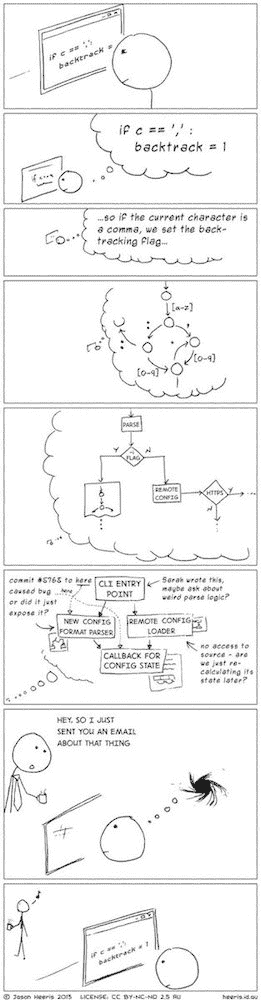 if c == ',':
backtrack =
if c == ',' :
backtrack = 1
...so if the current character is
a comma, we set the back-
tracking flag...
[a-z]
,
[0-9]
[0-9]
PARSE
Y
FLAG
N
REMOTE
CONFIG
HTTPS
Y
N
commit #5765 to here
caused bug ... here
or did it just
expose it?
CLI ENTRY
POINT
Sarah wrote this,
maybe ask about
weird parse logic?
NEW CONFIG
FORMAT PARSER
REMOTE CONFIG
LOADER
CALLBACK FOR
CONFIG STATE
no access to
source - are
we just re-
calculating its
state later?
HEY, SO I JUST
SENT YOU AN EMAIL
ABOUT THAT THING
if c == ',':
backtrack = 1
© Jason Heeris 2013 LICENSE: CC BY-NC-ND 2.5 AU
heeris.id.au